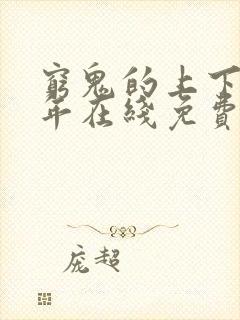 窮鬼的上下
年在綫免費
庞超